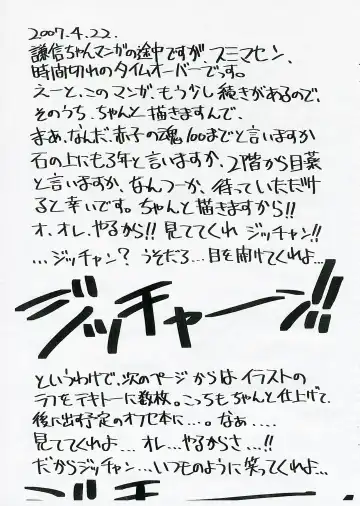 2007.4.22.
謙信ちゃんマンガの途中ですが、スミマセン、
時間切れのタイムオーバーでっす。
えーと、このマンガ、もう少し続きがあるので、
そのうち、ちゃんと描きますんで、
まぁ、なんだ、赤子の魂100までと言いますか
石の上にも3年と言いますか、2階から目薬
と言いますか、なんつーか、待っていただけ
ると幸いです。ちゃんと描きますから!!
オ、オレ、やるから!! 見ててくれ ジッチャン!!
…ジッチャン? うそだろ…目を開けてくれよ…
ジッチャーン!!
というわけで、次のページからはイラストの
ラフをテキトーに数枚。こっちもちゃんと仕上げて、
後に出す予定のオフセ本に…。なぁ....
見ててくれよ…オレ…やるからさ…!!
だからジッチャン…いつものように笑ってくれよ…